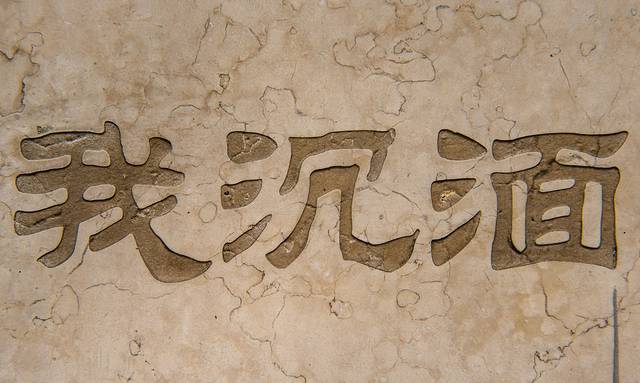 我沉湎